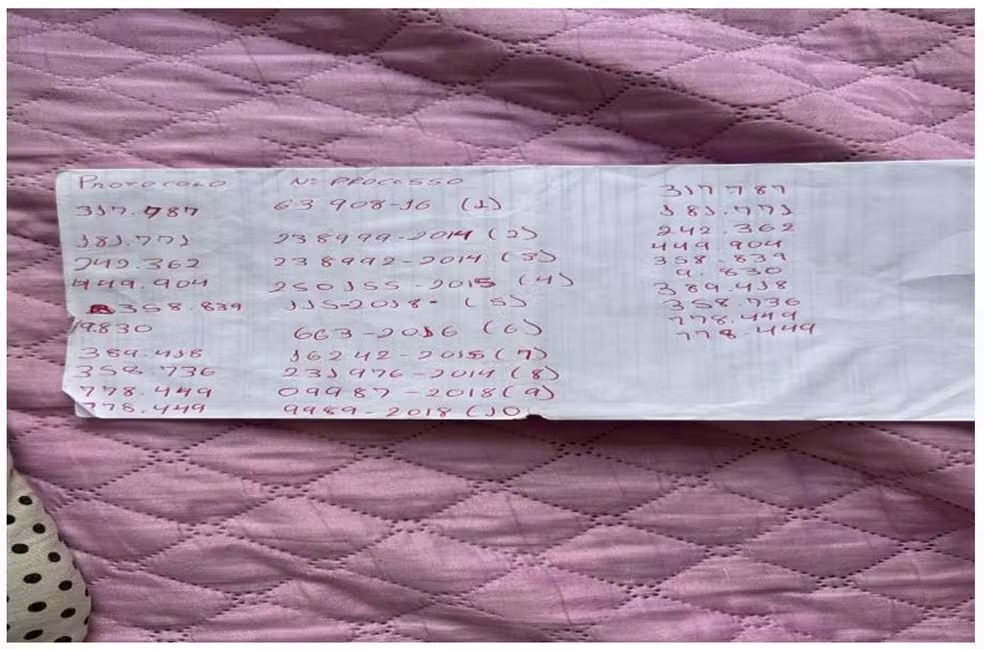 PROTOCOLO Nº PROCESSO
317.787 63908-16 (1)
181.771 238999-2014 (2)
242.362 238992-2014 (3)
449.904 250155-2015 (4)
358.839 115-2018- (5)
9.830 663-2016 (6)
389.418 16242-2015 (7)
358.736 231976-2014 (8)
778.449 09987-2018 (9)
778.449 9989-2018 (10
317787
181.771
242.362
449 904
358.839
9.830
389.418
358.736
778.449
778.449